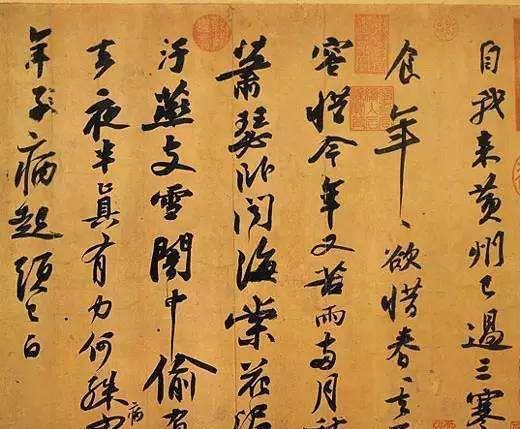 自我来黄州已過三寒
食年〻欲惜春〻去
容惜今年又苦雨兩月秋
蕭瑟卧聞海棠花泥
汙燕支雪闇中偷負
去夜半真有力何殊少
病
年子病起頭已白